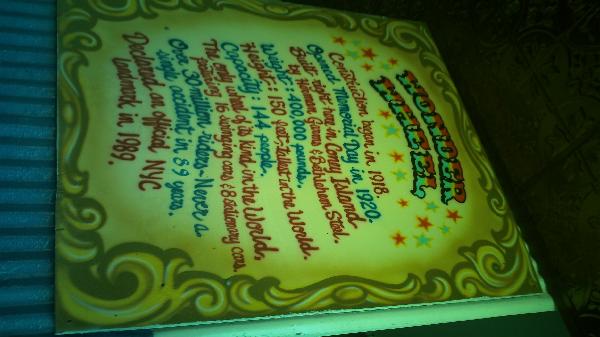 WONDER
WHEEL
Construction began in 1918.
Opened Memorial Day in 1920.
Built right here in Coney Island
by Bethlehem Steel.
Weight: 400,000 pounds.
Height: 150 feet-Tallest in the World.
Capacity: 144 people.
Only wheel of its kind in the World,
featuring 16 swinging cars & 8 stationary cars.
Over 30 million riders-Never a
single accident in 89 years.
Declared an official NYC
landmark in 1989.